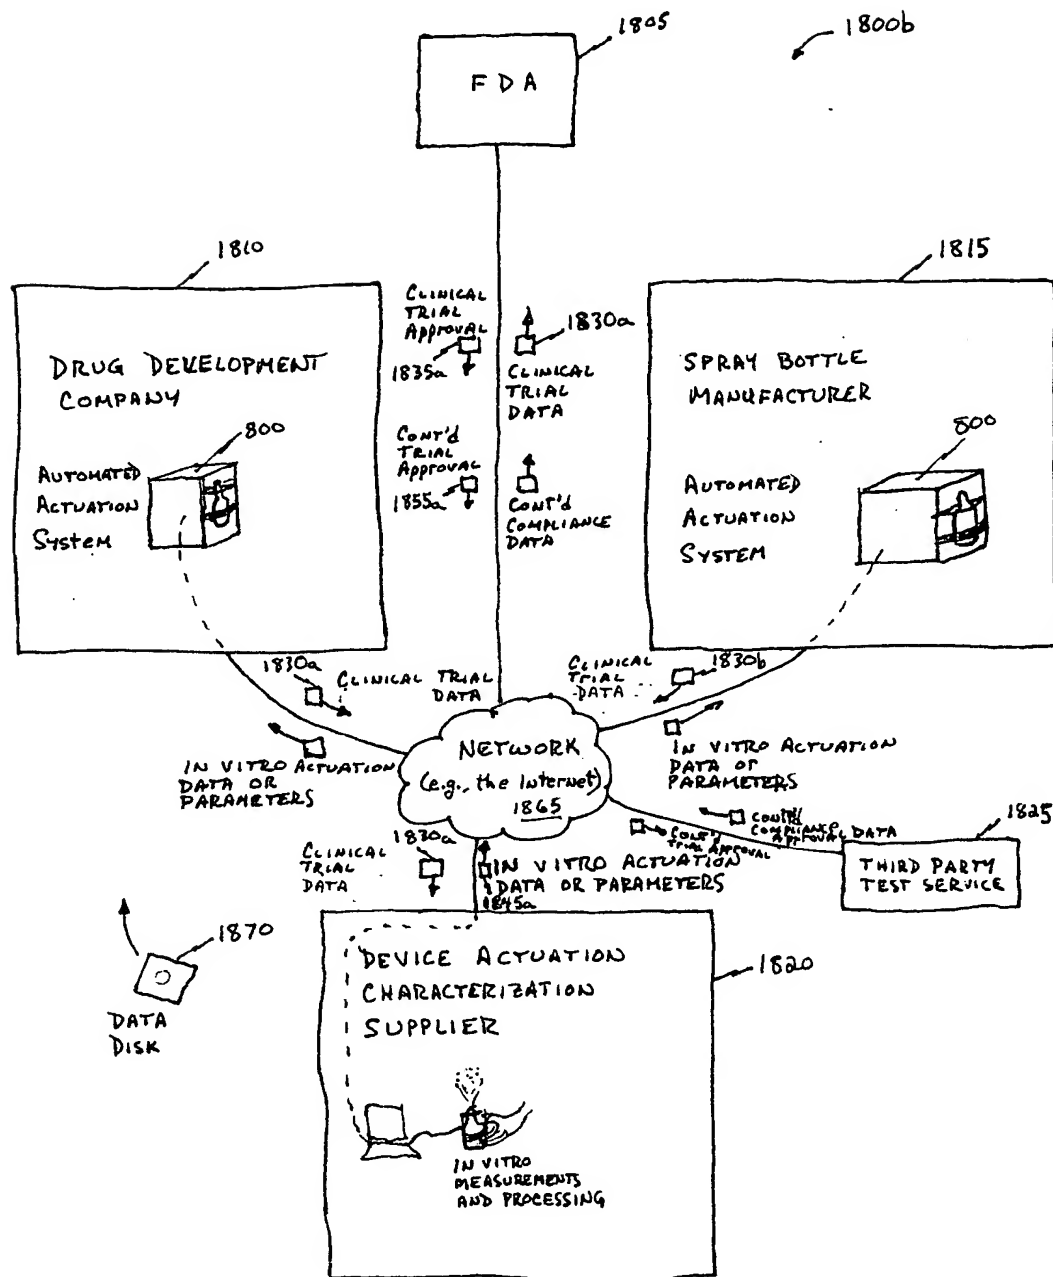 1805
1800b
FDA
1810
1815
DRUG DEVELOPMENT
COMPANY
800
AUTOMATED
ACTUATION
SYSTEM
CLINICAL
TRIAL
APPROVAL
1835a
1830a
CLINICAL
TRIAL
DATA
CONT'D
TRIAL
APPROVAL
1855a
CONT'D
COMPLIANCE
DATA
SPRAY BOTTLE
MANUFACTURER
800
AUTOMATED
ACTUATION
SYSTEM
1830a
CLINICAL TRIAL
DATA
IN VITRO ACTUATION
DATA OR
PARAMETERS
CLINICAL
TRIAL
DATA
1830b
IN VITRO ACTUATION
DATA OR
PARAMETERS
NETWORK
(e.g., the Internet)
1865
CONT'D
COMPLIANCE
APPROVAL DATA
CONT'D
TRIAL APPROVAL
1825
THIRD PARTY
TEST SERVICE
CLINICAL
TRIAL
DATA
1830a
IN VITRO ACTUATION
DATA OR PARAMETERS
1845a
1870
DATA
DISK
1820
DEVICE ACTUATION
CHARACTERIZATION
SUPPLIER
IN VITRO
MEASUREMENTS
AND PROCESSING